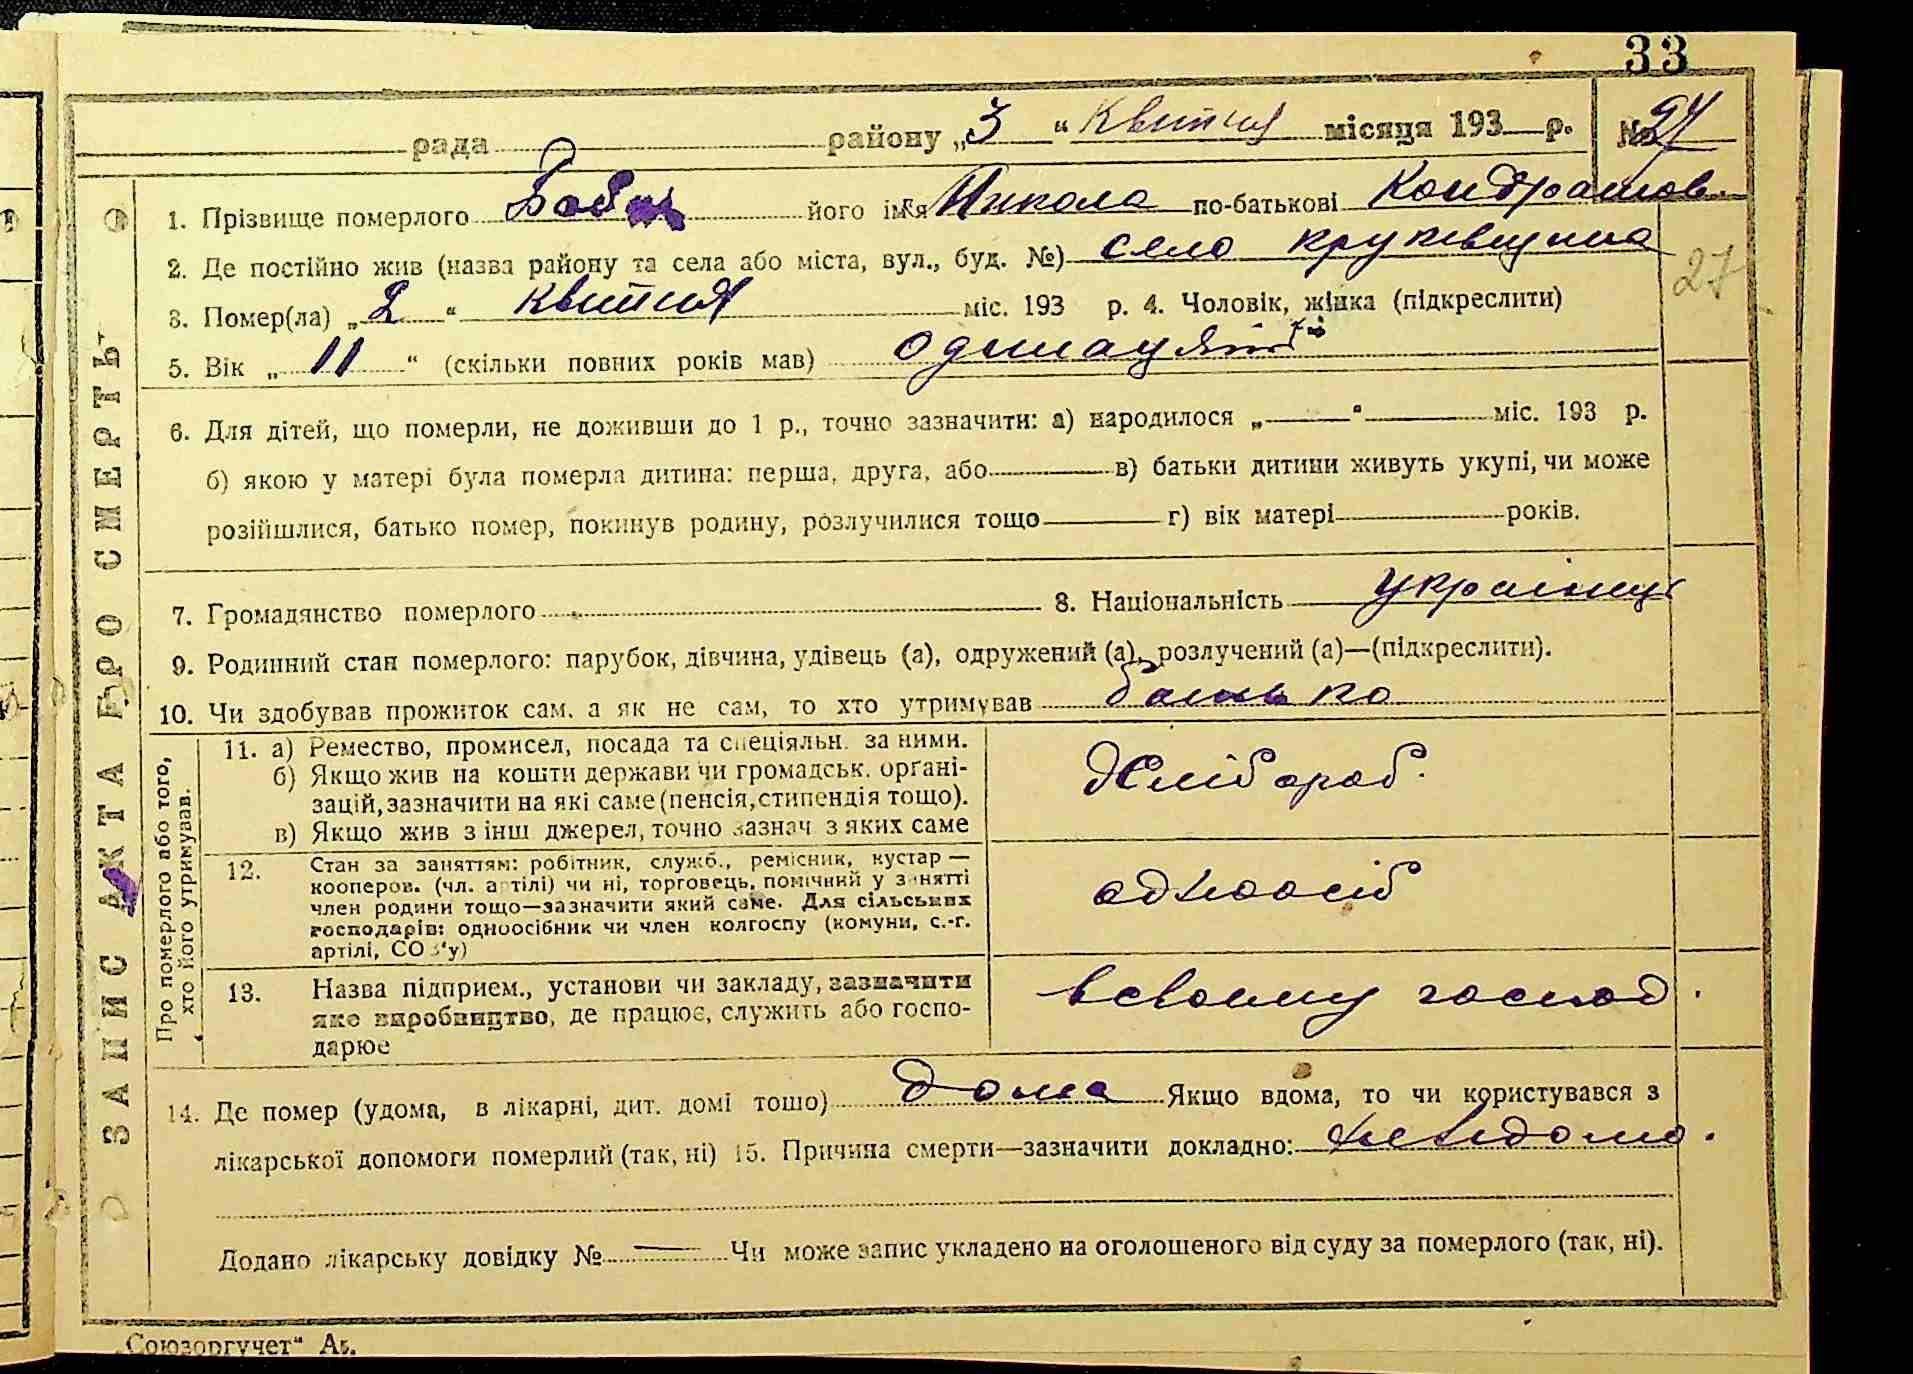 33
рада районУ „3“ Квітня місяця 193 р. №27
1. Прізвище померлого його ім'я Микола по-батькові Кондратов.
2. Де постійно жив (назва району та села або міста, вул., буд. №) село крупівщина
27
3. Помер(ла) „2“ квітня міс. 193 р. 4. Чоловік, жінка (підкреслити)
5. Вік „11“ (скільки повних років мав)
6. Для дітей, що померли, не доживши до 1 р., точно зазначити: а) народилося „—“ — міс. 193 р.
б) якою у матері була померла дитина: перша, друга, або — в) батьки дитини живуть укупі, чи може
розійшлися, батько помер, покинув родину, розлучилися тощо — г) вік матері — років.
7. Громадянство померлого 8. Національність українць
9. Родинний стан померлого: парубок, дівчина, удівець (а), одружений (а), розлучений (а)—(підкреслити).
10. Чи здобував прожиток сам. а як не сам, то хто утримував батько
ЗАПИС АКТА ПРО СМЕРТЬ
Про померлого або того, хто його утримував.
11. а) Ремество, промисел, посада та спеціяльн. за ними.
б) Якщо жив на кошти держави чи громадськ. орґані-
зацій, зазначити на які саме (пенсія, стипендія тощо).
в) Якщо жив з інш джерел, точно зазнач з яких саме
Хлібороб.
12. Стан за заняттям: робітник, служб., ремісник, кустар —
кооперов. (чл. артілі) чи ні, торговець, помічний у занятті
член родини тощо—зазначити який саме. Для сільських
господарів: одноосібник чи член колгоспу (комуни, с.-г.
артілі, СОЗ'у)
одноосіб
13. Назва підприєм., установи чи закладу, зазначити
яке виробництво, де працює, служить або госпо-
дарює
всвоєму господ.
14. Де помер (удома, в лікарні, дит. домі тошо) дома Якщо вдома, то чи користувався з
лікарської допомоги померлий (так, ні) 15. Причина смерти—зазначити докладно: невідомо.
Додано лікарську довідку № — Чи може запис укладено на оголошеного від суду за померлого (так, ні).
„Союзоргучет“